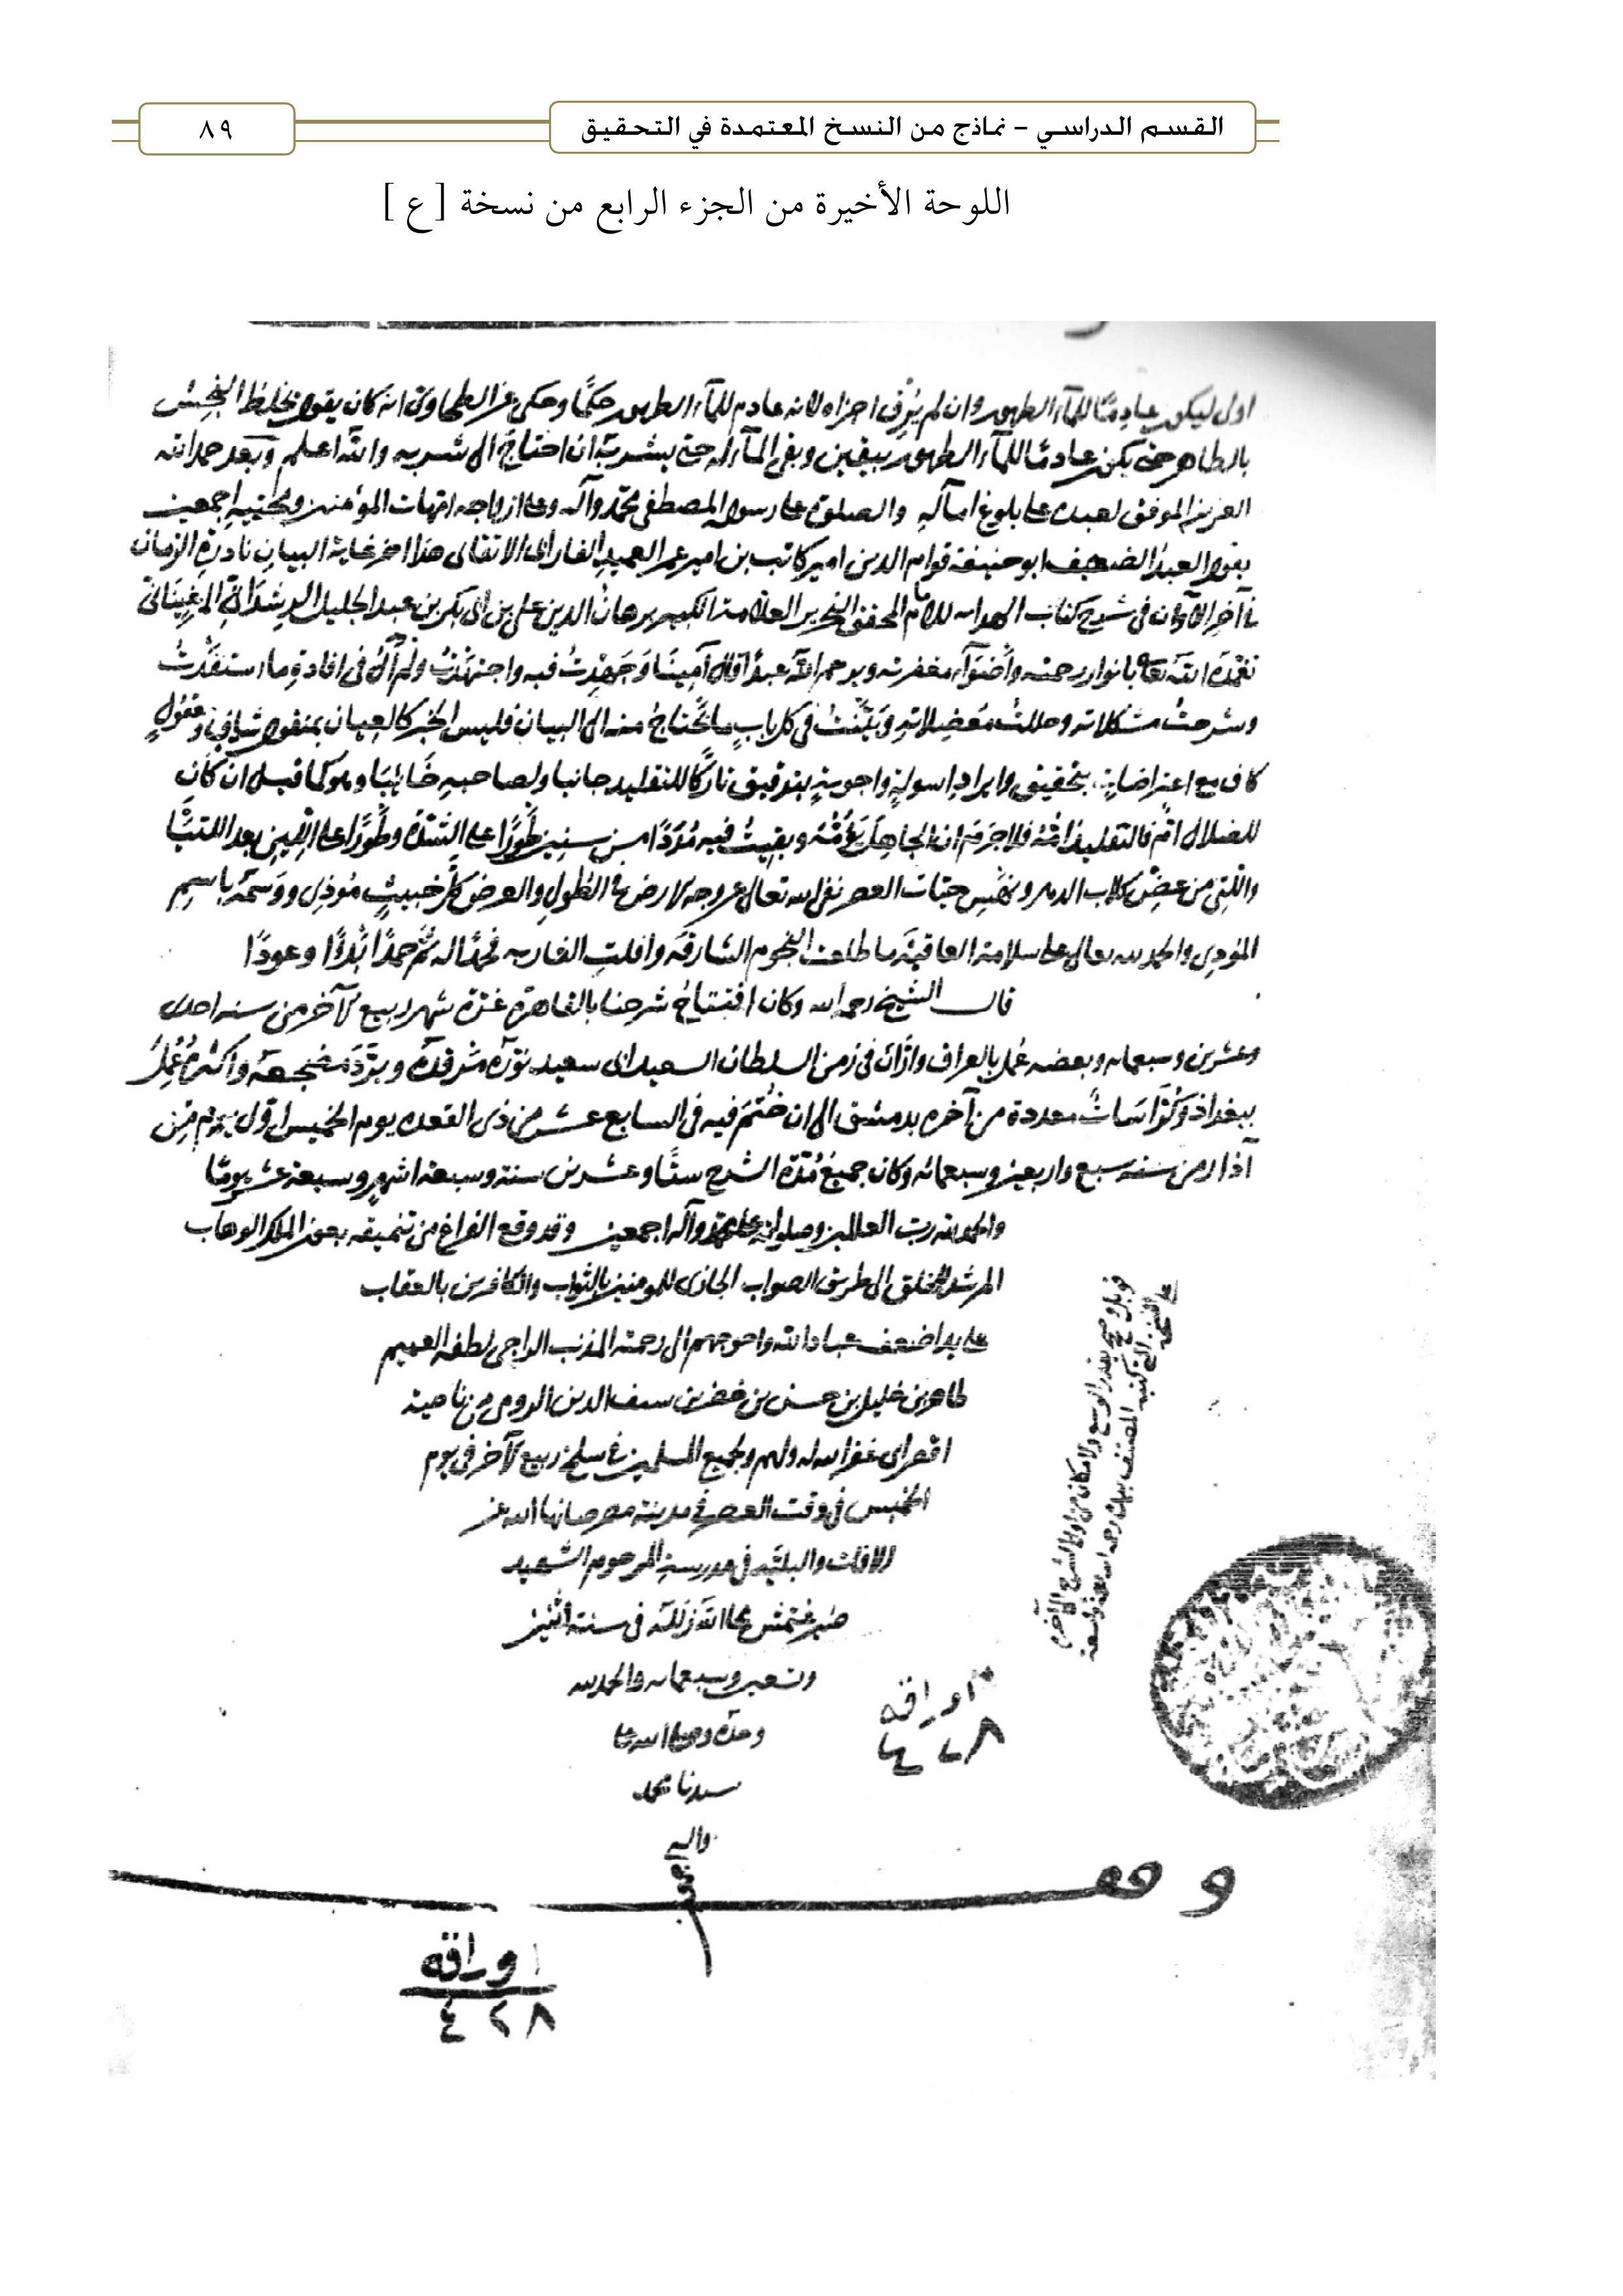 القسم الدراسي - نماذج من النسخ المعتمدة في التحقيق
٨٩
اللوحة الأخيرة من الجزء الرابع من نسخة [ع]
اولى ليكون عادمًا للماء الطهور وان لم يُرِق اجزاه لانه عادم للماء الطهور حكمًا وحكى عن الطحاوى انه كان يقول يخلط النجس
بالطاهر حتى يكون عادمًا للماء الطهور بيقين وبقى الماء له حتى يشربه ان احتاج الى شربه والله اعلم وبعد حمد الله
العزيز الموفق لعبده على بلوغ اماله والصلوة على رسوله المصطفى محمد وآله وعلى ازواجه امهات المؤمنين اجمعين
يقول العبد الضعيف ابو حنيفة قوام الدين امير كاتب بن امير عمر العميد الفارابى الاتقانى هذا اخر غاية البيان نادرة الزمان
فى آخر الاوان فى شرح كتاب الهدايه للامام المحقق النحرير العلامة الكبير برهان الدين على بن ابى بكر بن عبد الجليل الرشدانى المرغينانى
تغمده الله تعالى بانوار رحمته واضواء مغفرته ويرحم الله عبدًا قال آمينا وجهدت فيه واجتهدت ولم آل فى افادة ما استفدت
وشرحت مشكلاته وحللت معضلاته وبينت فى كل باب ما يحتاج منه الى البيان فليس الخبر كالعيان بمنقول شاف ومعقول
كاف مع اعتراضات بتحقيق وايراد اسولة واجوبة بتدقيق تاركًا للتقليد جانبا ولصاحبه خائبا وهو كما قيل ان كان
للضلال ام فالتقليد امه فلا جرم ان الجاهل يؤمه وبقيت فيه مددًا من سنين طورًا على الشدة وطورًا على اللين بعد اللتيا
والتى من عض كلاب الدهر ونهس حيات العصر نفى الله تعالى عن وجه الارض فى الطول والعرض كل خبيث موذى ووسمه باسم
الموذى والحمد لله تعالى على سلامة العاقبة ما طلعت النجوم الشارقه وافلت الغاربه فحمدًا له ثم حمدًا بدءًا وعودًا
قال الشيخ رحمه الله وكان افتتاح شرحنا بالقاهرة غرة شهر ربيع الآخر من سنه احدى
وعشرين وسبعمايه وبعضه عمل بالعراق واران فى زمن السلطان السعيد ابى سعيد نور مرقده وبرد مضجعه واكثره عمل
ببغداذ وكراسات معددة من آخره بدمشق الى ان ختم فيه فى السابع عشر من ذى القعده يوم الخميس اول يوم من
آذار من سنة سبع واربعين وسبعمائه وكان جميع مدة الشرح ستًا وعشرين سنة وسبعة اشهر وسبعة عشر يومًا
والحمد لله رب العالمين وصلواته على محمد وآله اجمعين وقد وقع الفراغ من تنميقه بعون الملك الوهاب
المرشد للخلق الى طريق الصواب المجازى للمومنين بالثواب والكافرين بالعقاب
على يد اضعف عباد الله واحوجهم الى رحمته المذنب الراجى لطفه العميم
طاهر بن خليل بن حسن بن خضر بن سيف الدين الرومى من ناحية
اقصراى غفر الله له ولهم ولجميع المسلمين فى سلخ ربيع الآخر فى يوم
الخميس فى وقت العصر فى مدينة مصر صانها الله عن
الافات والبليه فى مدرسة المرحوم الشهيد
صرغتمش محا الله زلله فى سنة اثنين
وتسعين وسبعمايه والحمد لله
وحده وصلى الله على
سيدنا محمد
واله
قوبل وصحح بقدر الوسع والامكان من اول الشرح الى آخره
على النسخة التى كتبه المصنف بيده رحمه الله رحمة واسعة
اوراقه
٤٢٨
وقف
اوراقه
٤٢٨